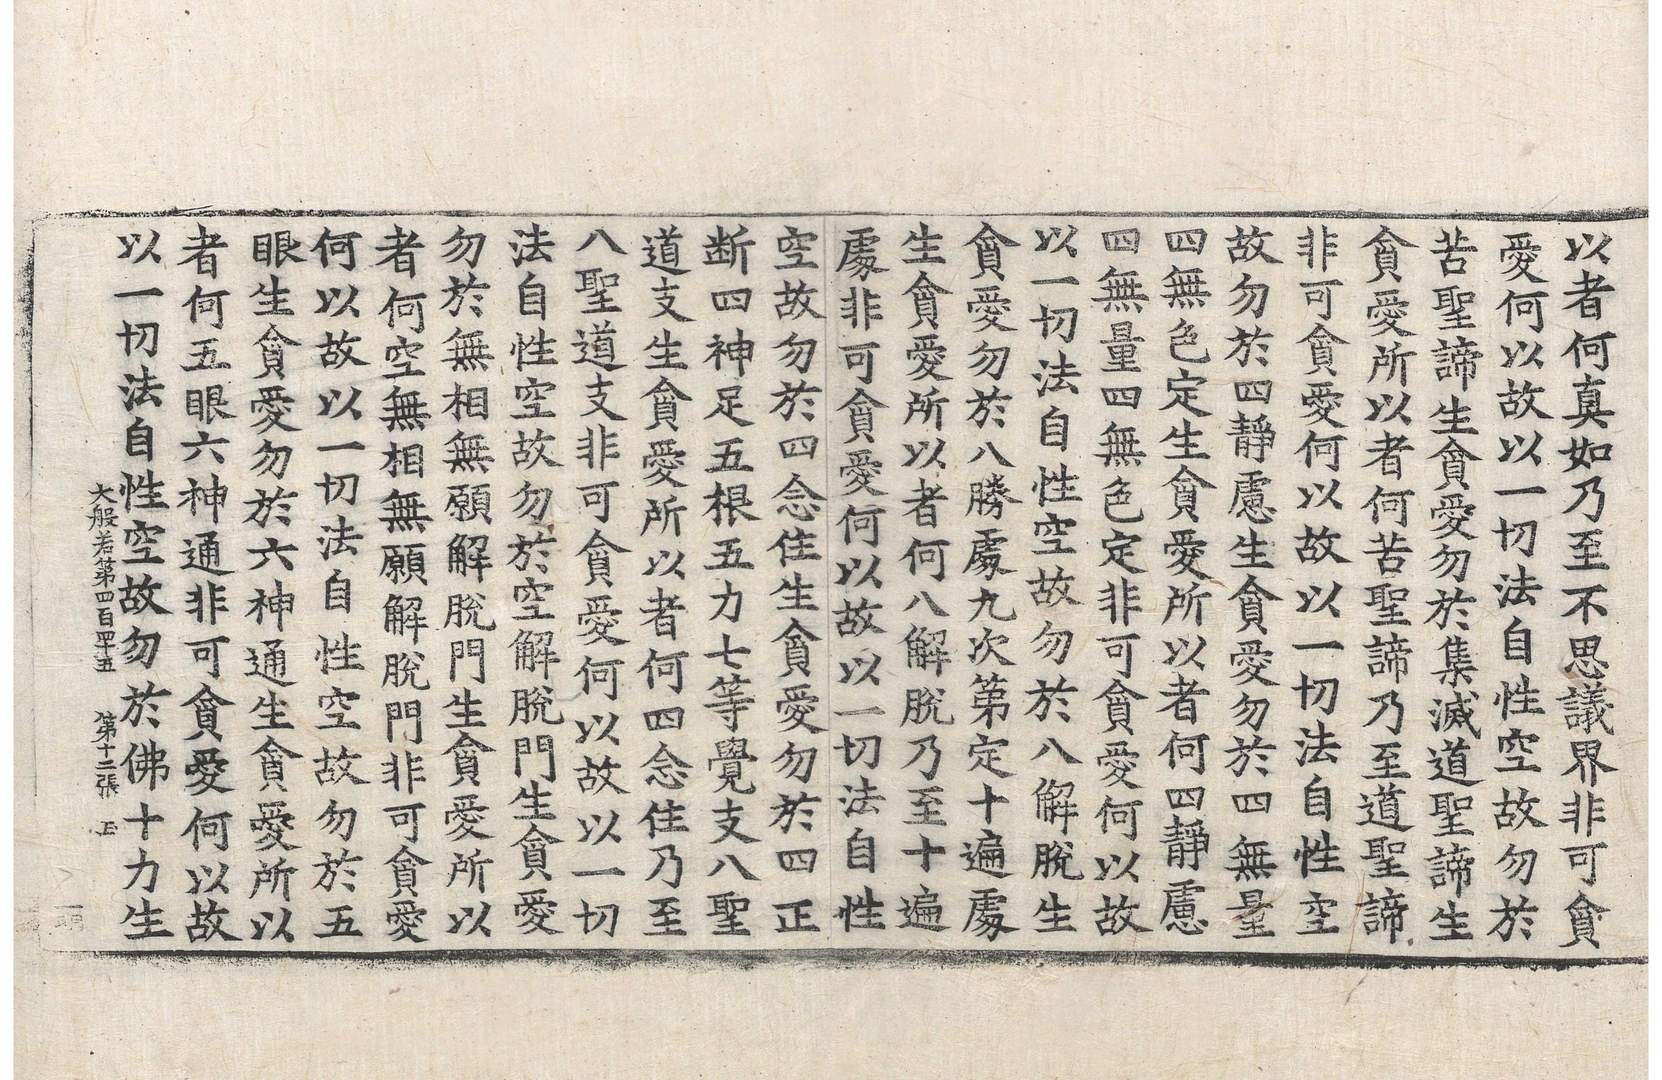 以者何真如乃至不思議界非可貪
愛何以故以一切法自性空故勿於
苦聖諦生貪愛勿於集滅道聖諦生
貪愛所以者何苦聖諦乃至道聖諦
非可貪愛何以故以一切法自性空
故勿於四靜慮生貪愛勿於四無量
四無色定生貪愛所以者何四靜慮
四無量四無色定非可貪愛何以故
以一切法自性空故勿於八解脫生
貪愛勿於八勝處九次第定十遍處
生貪愛所以者何八解脫乃至十遍
處非可貪愛何以故以一切法自性
空故勿於四念住生貪愛勿於四正
断四神足五根五力七等覺支八聖
道支生貪愛所以者何四念住乃至
八聖道支非可貪愛何以故以一切
法自性空故勿於空解脫門生貪愛
勿於無相無願解脫門生貪愛所以
者何空無相無願解脫門非可貪愛
何以故以一切法自性空故勿於五
眼生貪愛勿於六神通生貪愛所以
者何五眼六神通非可貪愛何以故
以一切法自性空故勿於佛十力生
大般若第四百四十五 第十二張